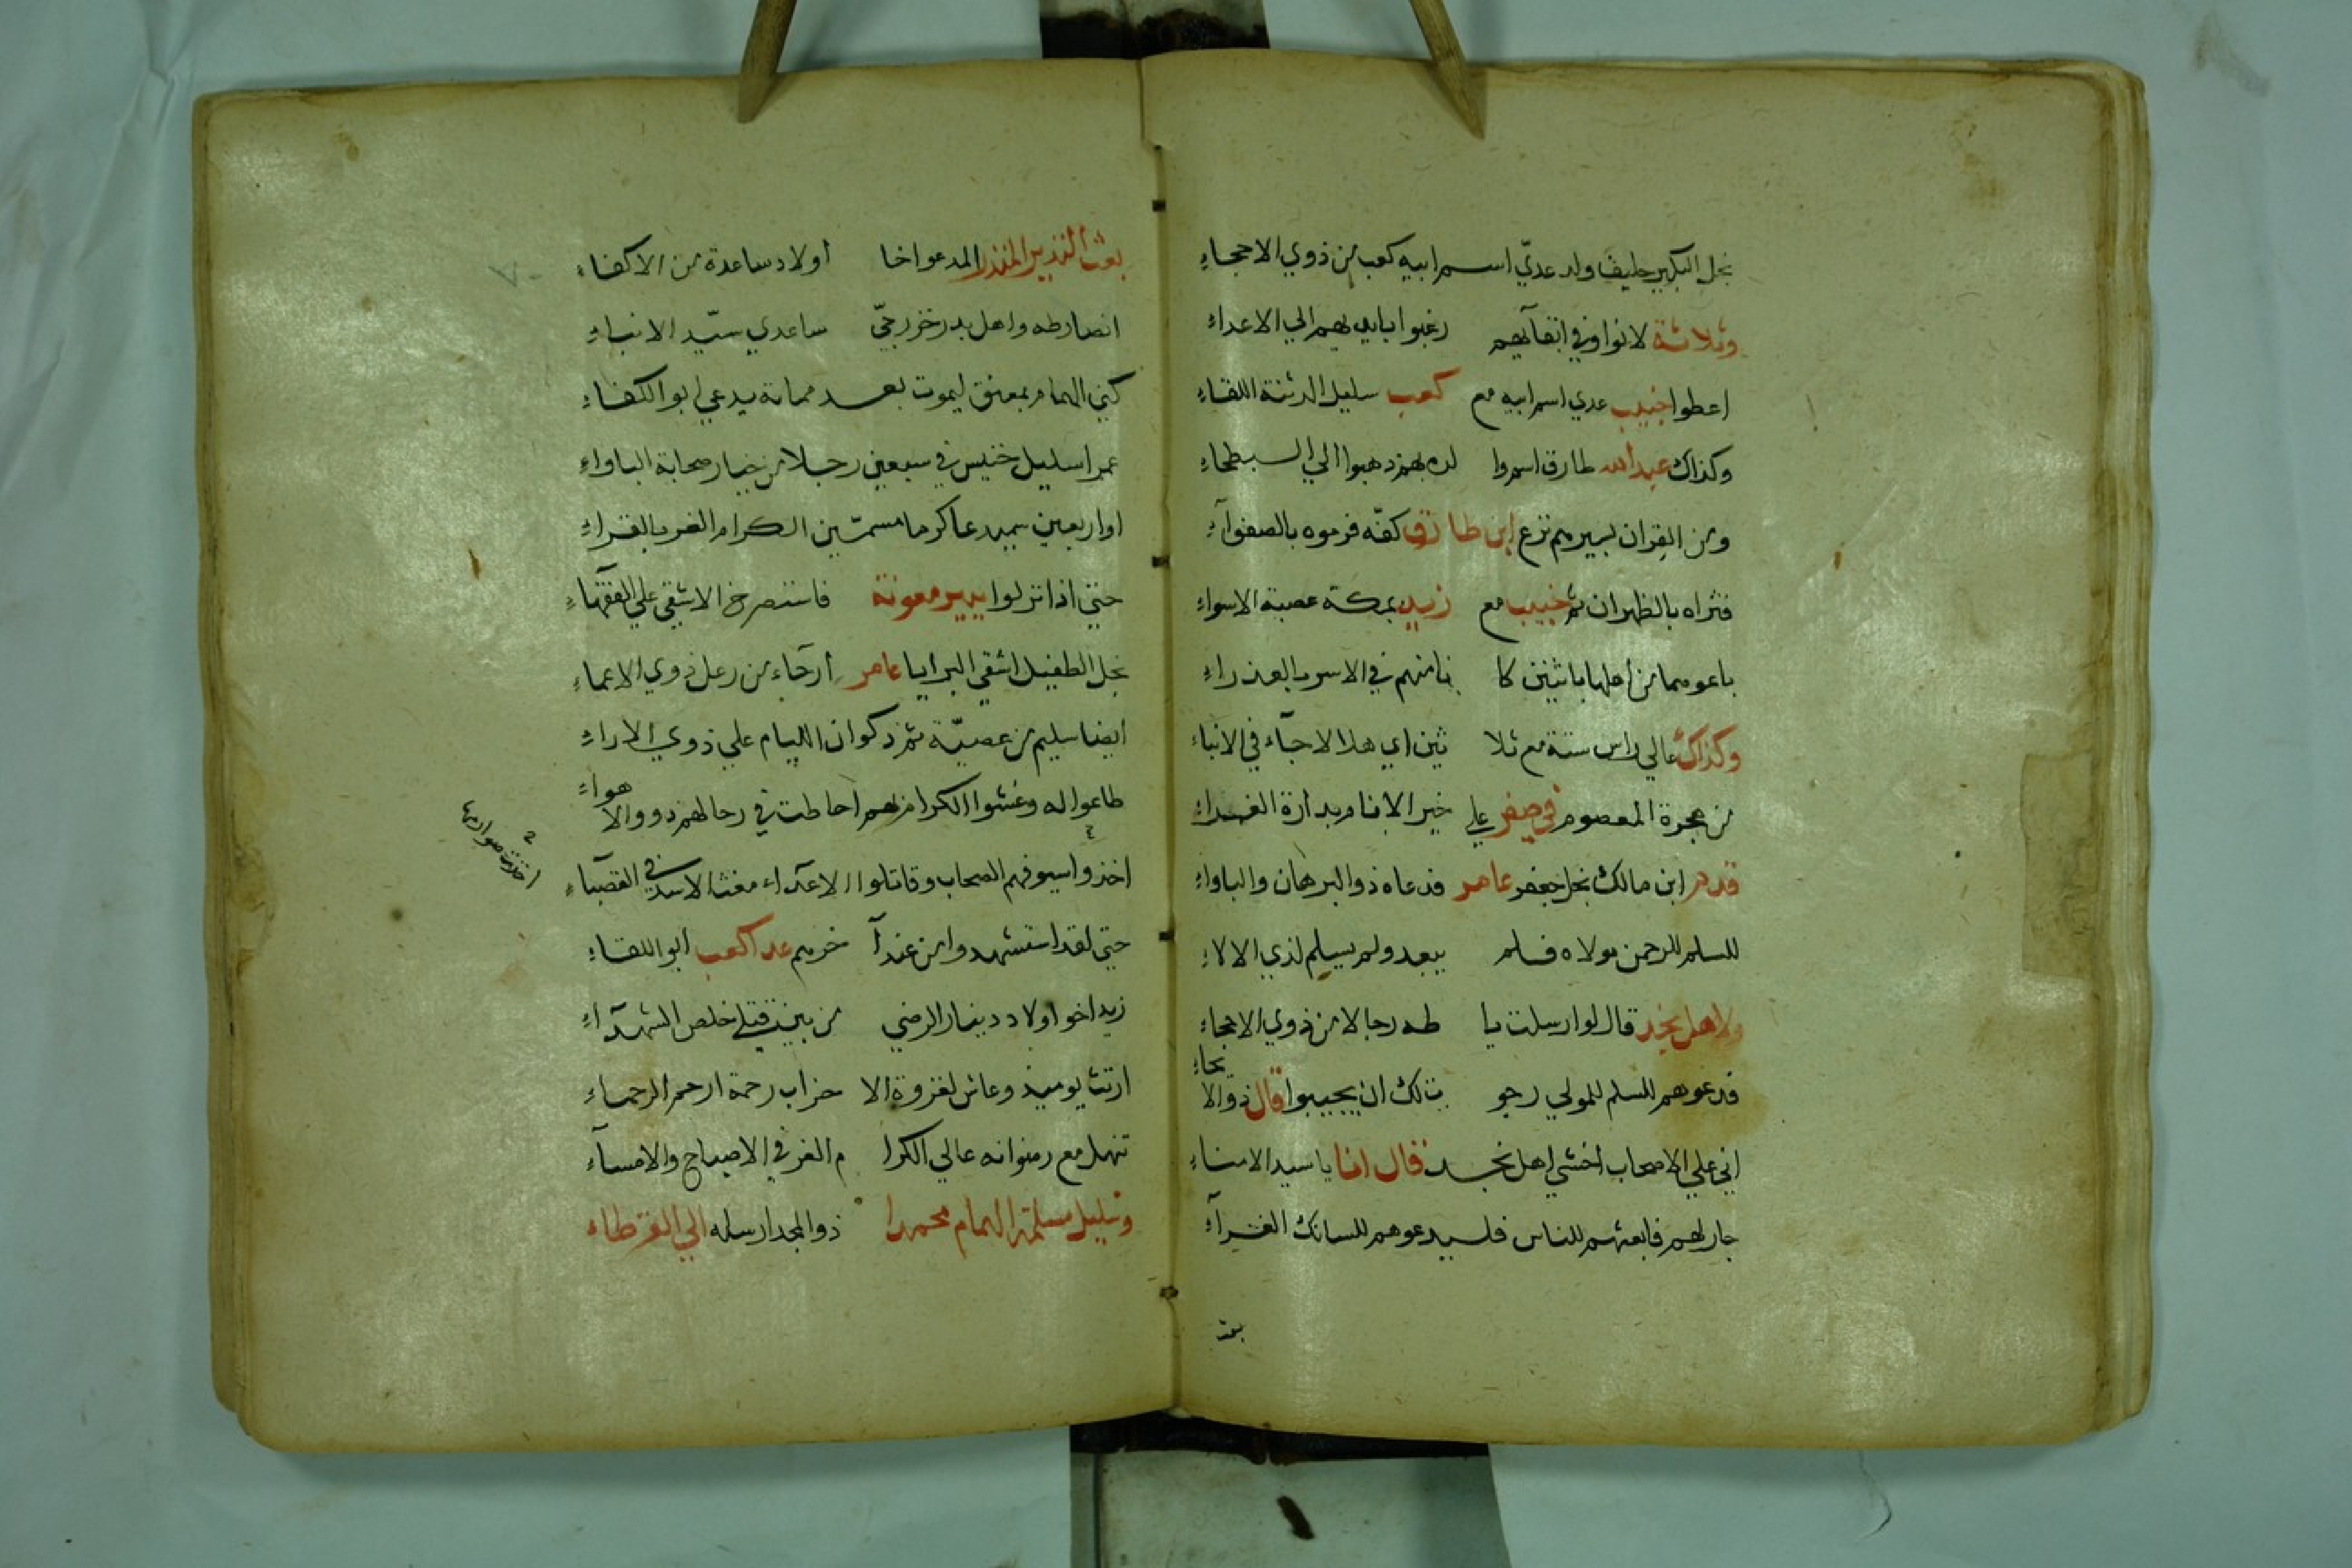 نجل البكير حليف ولد عدي اسم ابيه كعب من ذوي الاحجاء
وثلاثة لانوا وفي ابقائهم رغبوا بايديهم الي الاعداء
اعطوا خبيب عدي اسم ابيه مع كعب سليل الدثنة اللقاء
وكذاك عبد الله طارق اسروا لدهم ذهبوا الي البطحاء
ومن القران لسيرهم نزع ابن طارق كفه فرموه بالصفواء
فثراه بالظهران ثم خبيب مع زيد بمكة عصبة الاسواء
باعوهما من اهلها باثنين كا نا منهم في الاسر بالعذراء
وكذاك عالي راس ستة مع ثلا ثين اي هلالا جاء في الانباء
من هجرة المعصوم في صفر علي خير الانام ربدارة الغداء
قدم ابن مالك نجل جعفر عامر فدعاه ذو البرهان والباواء
للسلم للرحمن مولاه فلم يبعد ولم يسلم لذي الالاء
ولاهل نجد قال لو ارسلت يا طه رجالا من ذوي الاحجاء
فدعوهم للسلم للمولي رجو تلك ان يجيبوا قال ذو الانحاء
اني علي الاصحاب اخشي اهل نجد قال انا يا سيد الامناء
جار لهم فابعثهم للناس فليدعوهم للسانك الغراء
بعث
بعث النذير المنذر المدعو اخا اولاد ساعدة من الاكفاء
انصار طه واهل بدر خزرجي ساعدي سيد الانباء
كني الهمام بمعنق ليموت بعد مماته يدعي ابو الكفاء
عمرا سليل خنيس في سبعين رجلا من خيار صحابة الباواء
او اربعين سميدعا كرما مسمين الكرام الغر بالقراء
حتي اذا نزلوا ببير معونة فاستصرخ الاشقي علي الفقهاء
نجل الطفيل اشقي البرايا عامر ارجاء من رعل ذوي الاعماء
ايضا سليم من عصية ثم ذكوان اللئام علي ذوي الاراء
طاعوا له وغشوا الكرام بهم احاطت في رحالهم ذوو الاهواء
اخذوا سيوفهم الصحاب وقاتلوا الاعداء مغشا الاسد في القصباء
حتي لقد استشهدوا من عند اخرهم عدا كعب ابو اللقاء
زيد اخو اولاد دينار الرضي من بين قتلي خلص الشهداء
ارتث يوميذ وعاش لغزوة الا حزاب رحمة ارحم الرحماء
تنهل مع رضوانه عالي الكرا م الغر في الاصباح والامساء
وسليل مسلمة الهمام محمدا ذو المجد ارسله الي القرطاء